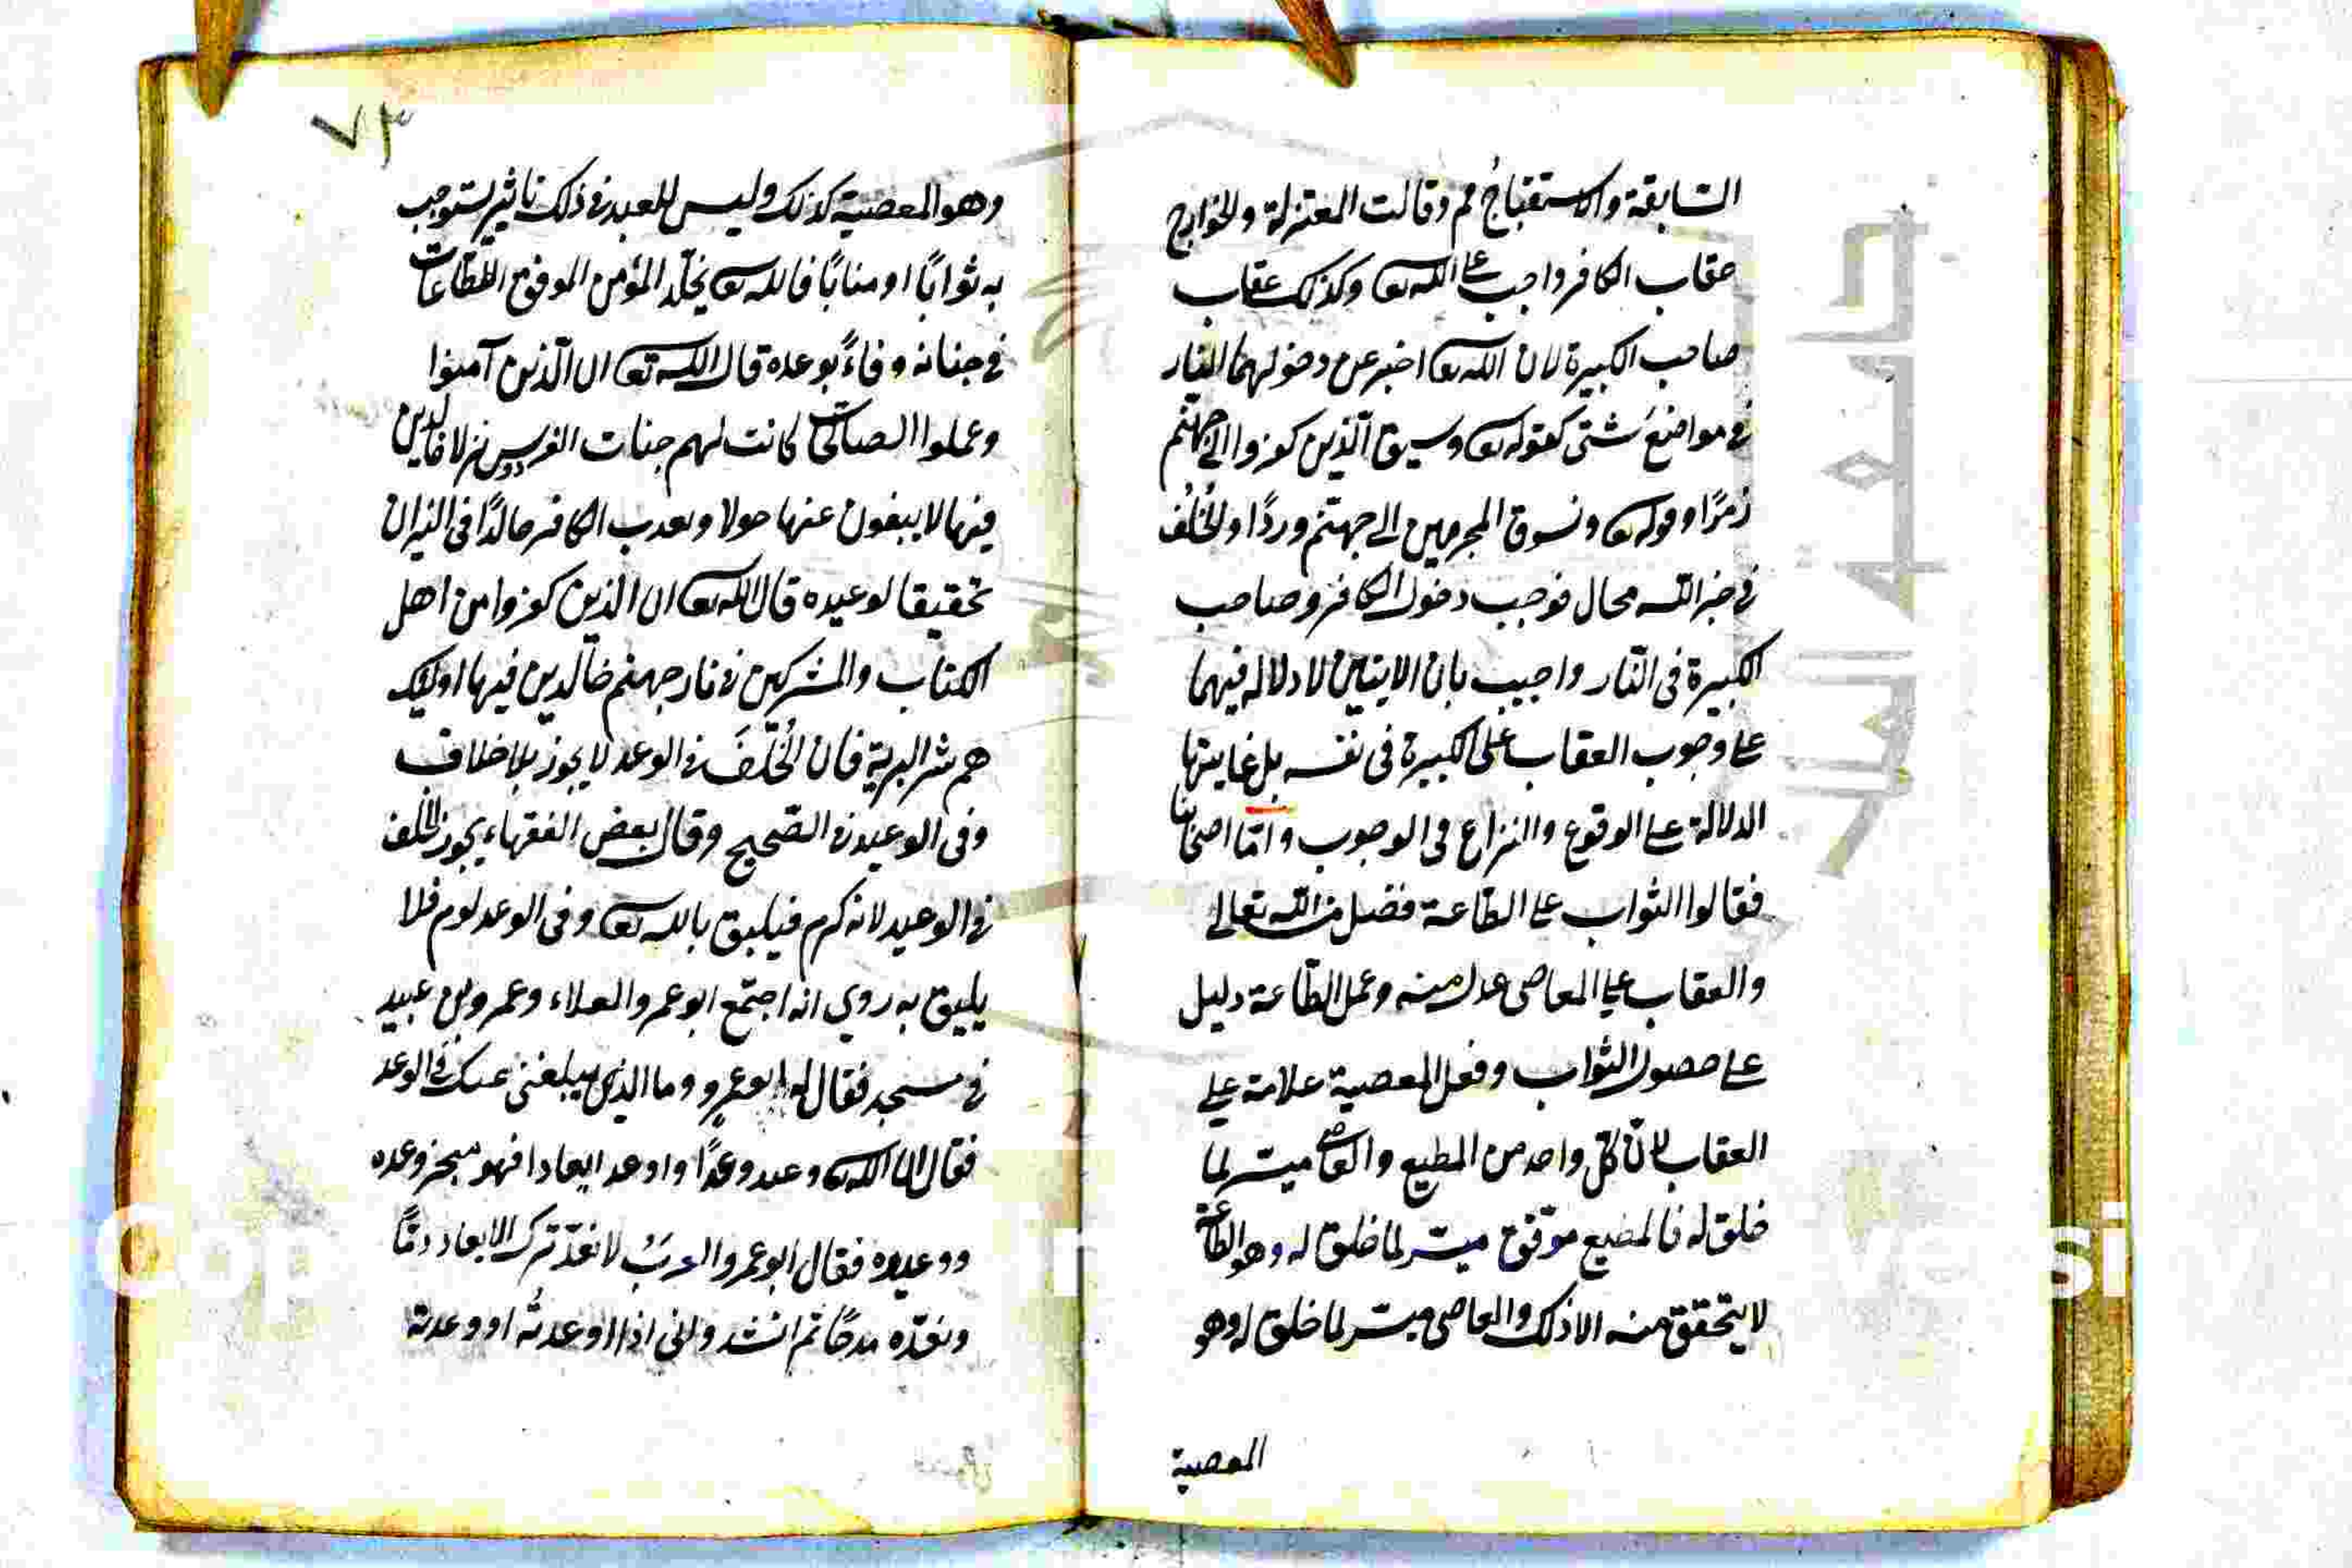 السابقة والاستقباح ثم وقالت المعتزلة والخوارج
عقاب الكافر واجب على الله تع وكذلك عقاب
صاحب الكبيرة لان الله تع اخبر عن دخولهما النار
في مواضع شتى كقوله تع وسيق الذين كفروا الى جهنم
زمرًا وقوله تع ونسوق المجرمين الى جهنم وردًا والخُلف
في خبر الله محال فوجب دخول الكافر وصاحب
الكبيرة فى النار واجيب بان الايتين لا دلاله فيهما
على وجوب العقاب على الكبيرة فى نفسه بل غايتها
الدلالة على الوقوع والنزاع في الوجوب وامّا اصحابنا
فقالوا الثواب على الطاعة فضل من الله تعالى
والعقاب على المعاصى عدل منه وعمل الطّاعة دليل
على حصول الثواب وفعل المعصية علامة على
العقاب لانّ كلّ واحد من المطيع والعاصي ميسّر لما
خلق له فالمطيع موّفق ميسّر لما خلق له وهو الطاعة
لا يتحقق منه الا ذلك والعاصى ميسّر لما خلق له وهو
المعصية
٧٣
وهو المعصية كذلك وليس للعبد في ذلك تاثير يستوجب
به ثوابًا او فالله تع يخلّد المؤمن الموفق للطّاعات
في جنانه وفاءً بوعده قال الله تع ان الّذين آمنوا
وعملوا الصالحات كانت لهم جنات الفردوس نزلا خالدين
فيها لا يبغون عنها حولا ويعذب الكافر خالدًا فى النيران
تحقيقا لوعيده قال الله تع ان الذين كفروا من اهل
الكتاب والمشركين في نار جهنم خالدين فيها اولئك
هم شر البرية فان الخُلفَ في الوعد لا يجوز بلا خلاف
وفى الوعيد في الصّحيح وقال بعض الفقهاء يجوز الخلف
في الوعيد لانه كرم فيليق بالله تع وفى الوعد لوم فلا
يليق به روي انه اجتمع ابو عمر والعلاء وعمرو بن عبيد
في مسجد فقال له ابو عمرو وما الذى يبلغنى عنك في الوعد
فقال ان الله تع وعد وعدًا واوعد ايعادا فهو منجز وعده
ووعيده فقال ابو عمر والعربُ لا تعدّ ترك الايعاد ذمًّا
وتعدّه مدحًا ثم انشد وانى اذا اوعدتُه او وعدته